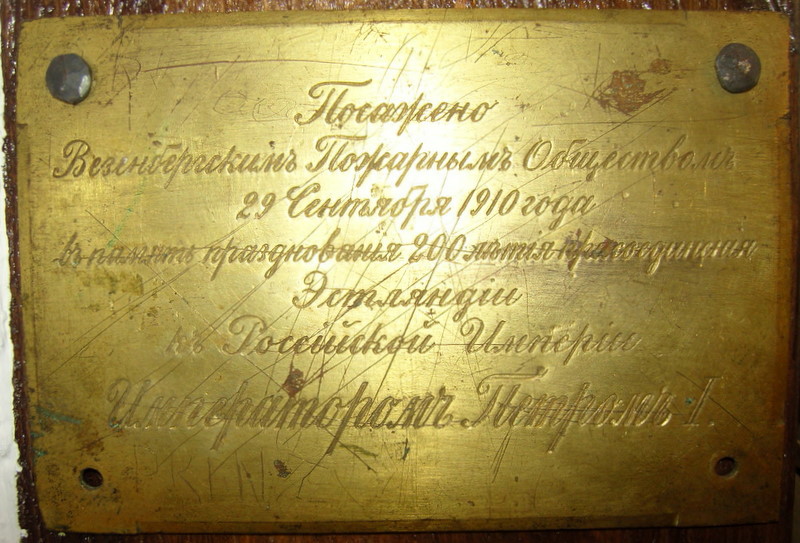 Посажено
Везенбергскимъ Пожарнымъ Обществомъ
29 Сентября 1910 года
въ память празднованія 200 лѣтія присоединенія
Эстляндіи
къ Россійской Имперіи
Императоромъ Петромъ I.